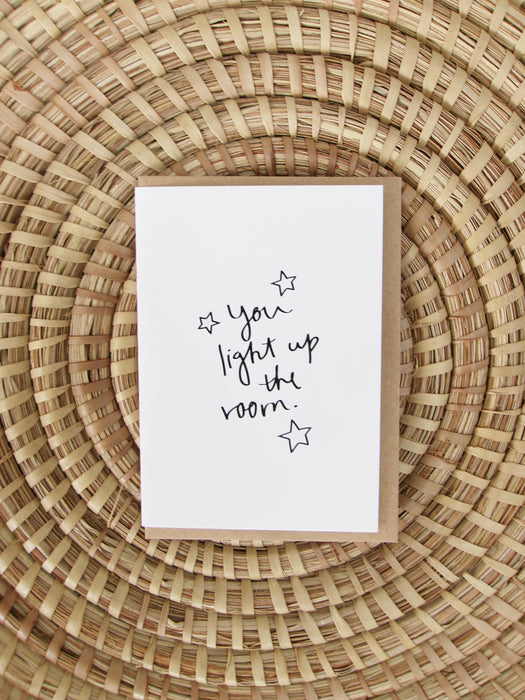 You
light up
the
room.